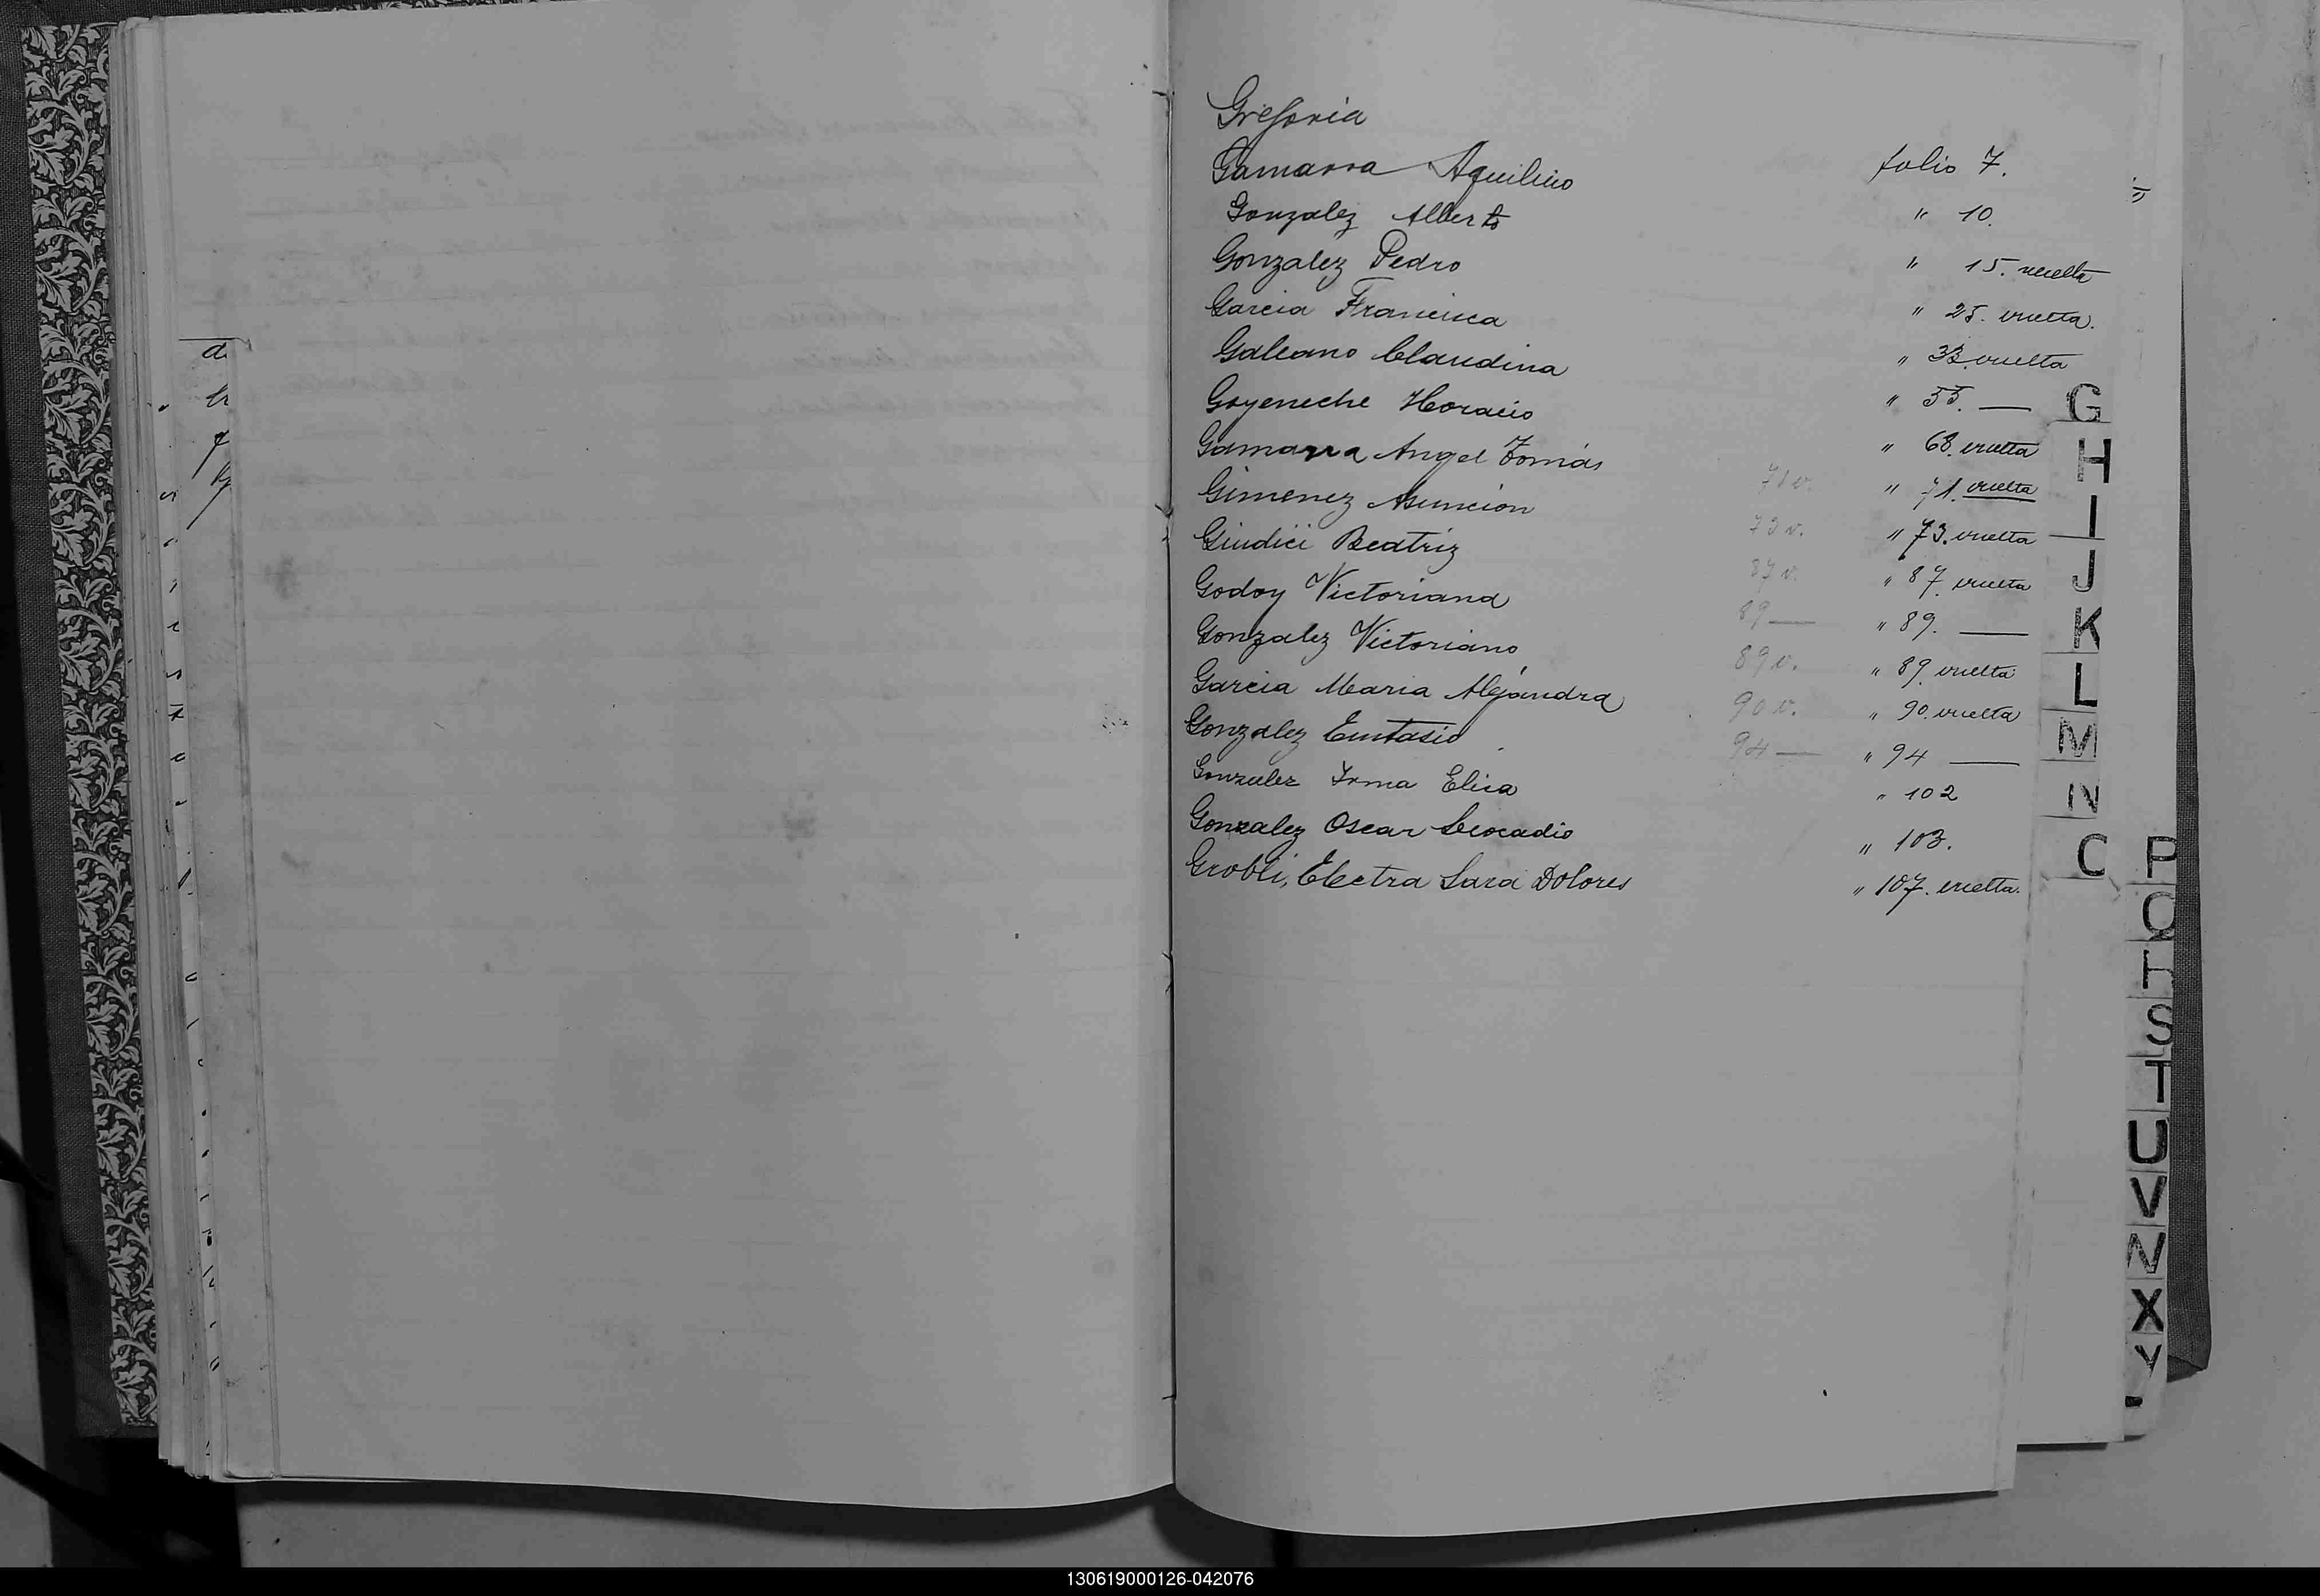 Gregoria
Gamarra Aquilino folio 7.
Gonzalez Alberto " 10.
Gonzalez Pedro " 15. vuelta
Garcia Francisca " 25. vuelta.
Galeano Claudina " 33. vuelta
Goyeneche Horacio " 55. —
Gamarra Angel Tomás " 68. vuelta
Gimenez Asuncion 71 v. " 71. vuelta
Giudici Beatriz 73 v. " 73. vuelta
Godoy Victoriana 87 v. " 87. vuelta
Gonzalez Victoriano 89 — " 89. —
Garcia Maria Alejandra 89 v. " 89. vuelta
Gonzalez Eustasio 90 v. " 90. vuelta
94 — " 94 —
Gonzalez Irma Elisa " 102
Gonzalez Oscar Leocadio " 103.
Grobli, Electra Sara Dolores " 107. vuelta.
G
H
I
J
K
L
M
N
O
P
Q
R
S
T
U
V
X
Y
130619000126-042076